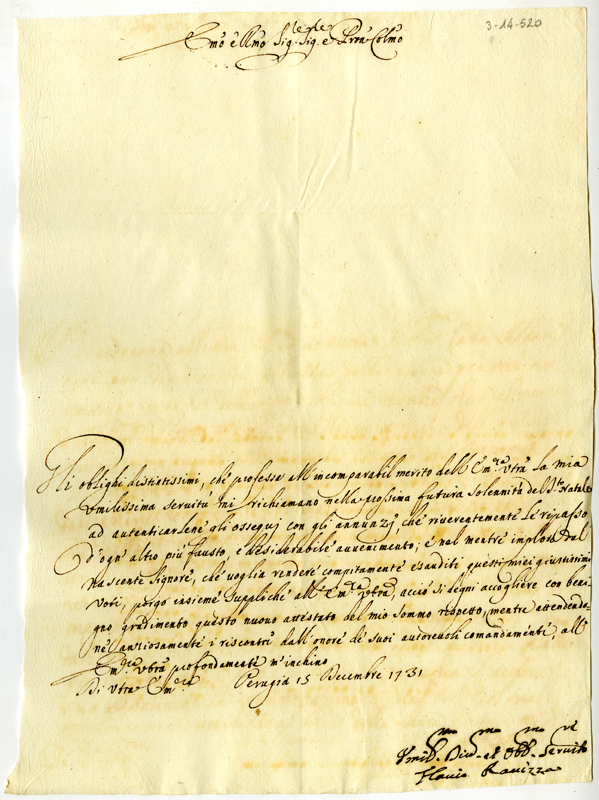 3-14-520
Emo è Rmo Sig.re Sig.re e Pron Colmo
Gli oblighi distintissimi, che professa all'incomparabil merito dell'Em.za Vtra la mia
umilissima servitù mi richiamano nella prossima futura solennità del S.to Natale
ad autenticarlene gli ossequj con gli annunzj, che riverentemente le
d'ogn'altro più fausto, e desiderabile avvenimento; e nel mentre imploro dal
nascente Signore, che voglia rendere compitamente esauditi questi miei giustissimi
voti, porgo insieme suppliche all'Em.za Vtra, acciò si degni accogliere con beni
gno gradimento questo nuovo attestato del mio sommo rispetto, mentre attendendo
ne ansiosamente i riscontri dall'onore de suoi autorevoli comandamenti, all'
Em.za Vtra profondamente m'inchino
Di Vtra Em.za Perugia 15 Decembre 1731
Umil.mo Div.mo et Obb.mo Servit.re
Flavio Ravizza